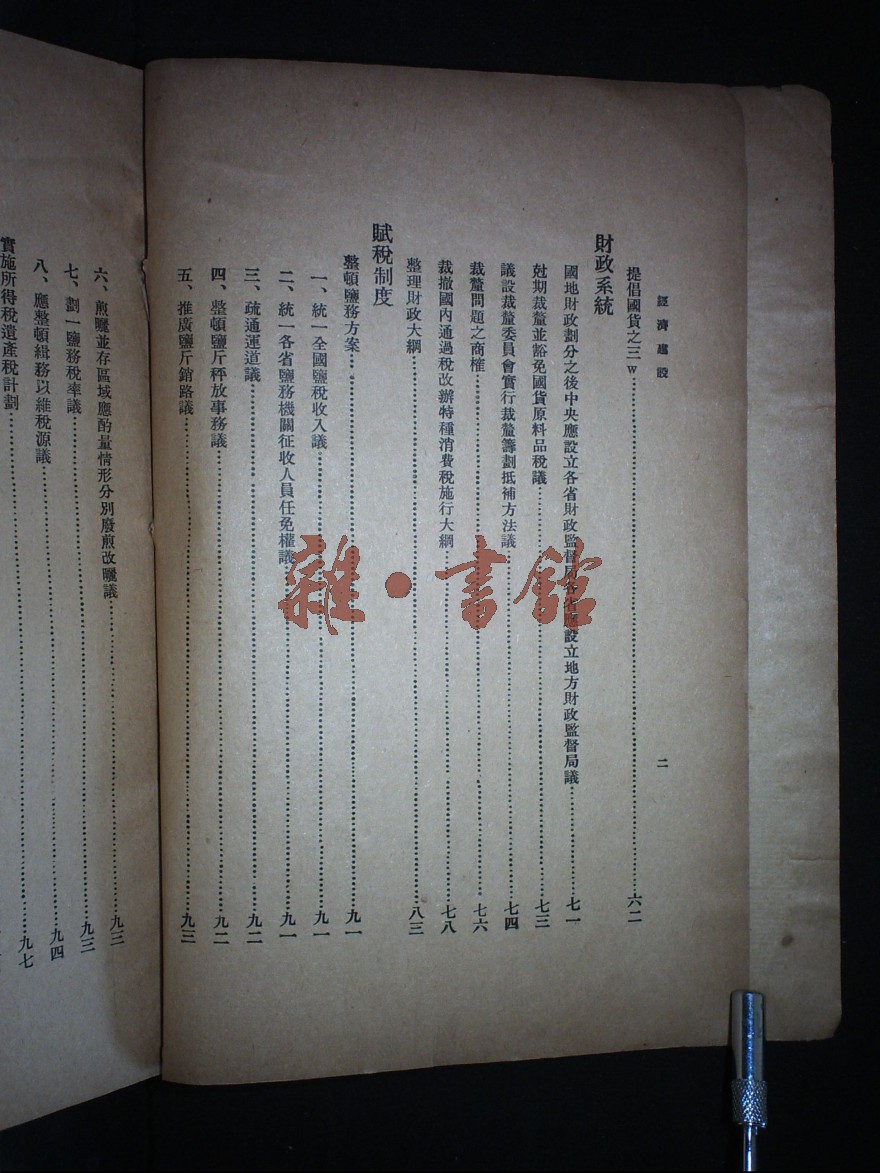 經濟建設
二
提倡國貨之三w……六二
財政系統
國地財政劃分之後中央應設立各省財政監督局各省應設立地方財政監督局議……七一
尅期裁釐並豁免國貨原料品稅議……七三
議設裁釐委員會實行裁釐籌劃抵補方法議……七四
裁釐問題之商榷……七六
裁撤國內通過稅改辦特種消費稅施行大綱……七八
整理財政大綱……八三
賦稅制度
整頓鹽務方案……九一
一、統一全國鹽稅收入議……九一
二、統一各省鹽務機關征收人員任免權議……九一
三、疏通運道議……九二
四、整頓鹽斤秤放事務議……九二
五、推廣鹽斤銷路議……九三
六、煎曬並存區域應酌量情形分別廢煎改曬議……九三
七、劃一鹽務稅率議……九三
八、應整頓緝務以維稅源議……九四
實施所得稅遺產稅計劃……九七
雜·書館